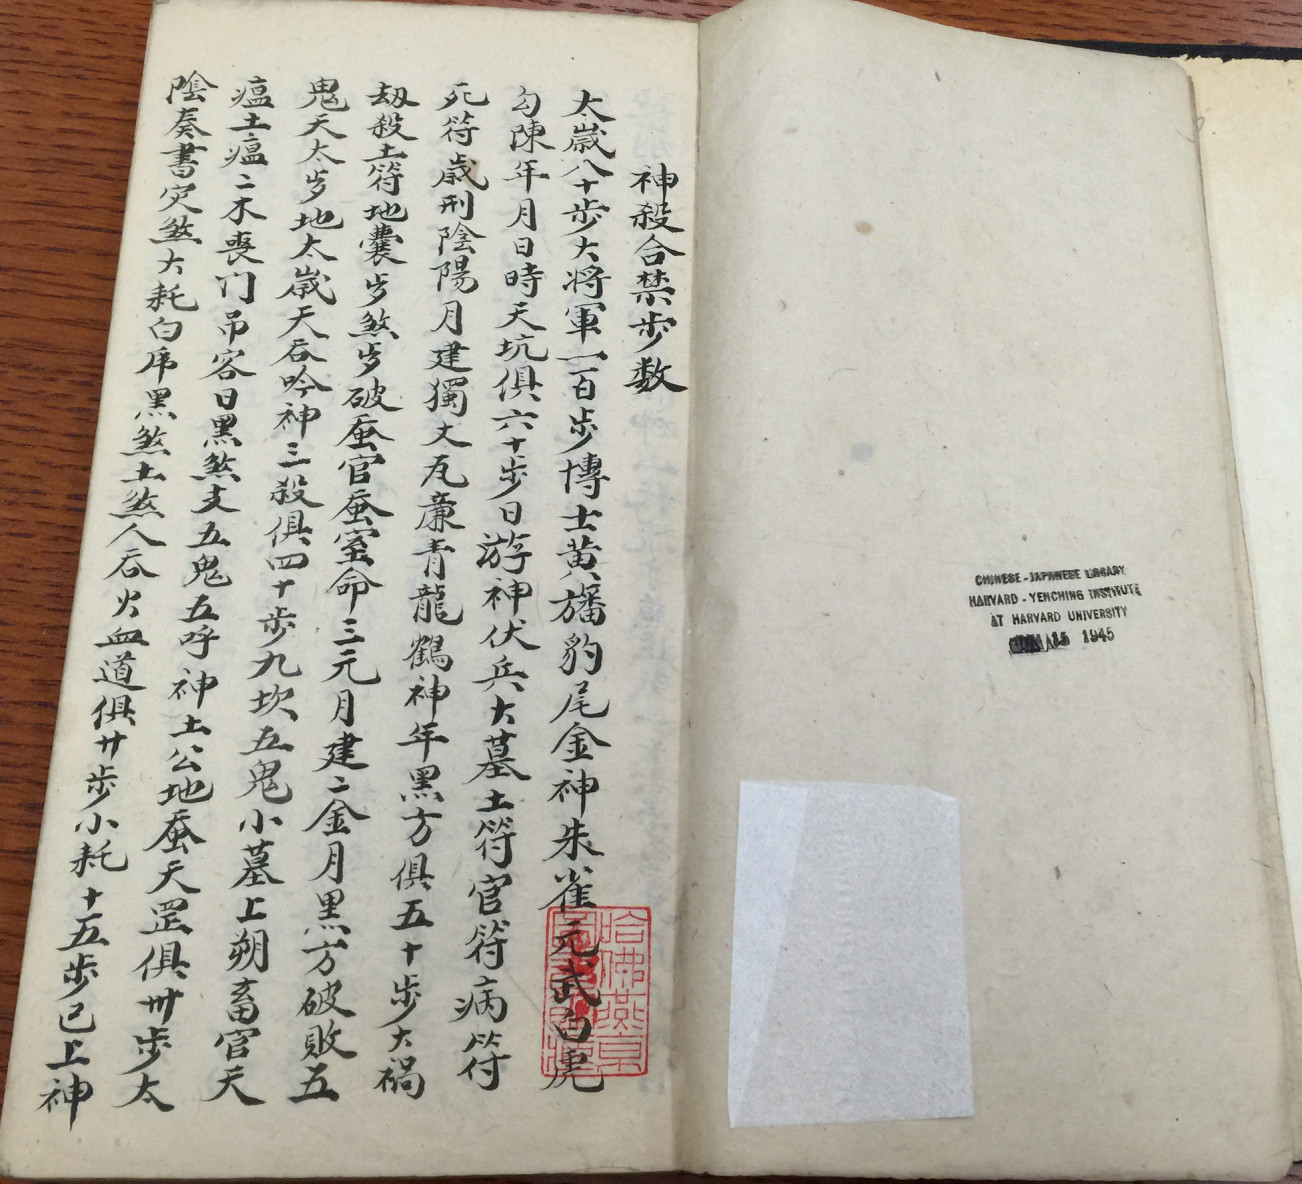 神殺合禁步数
太嵗八十步大将軍一百步博士黄旛豹尾金神朱雀元武白虎
勾陳年月日時天坑俱六十步日游神伏兵大墓土符官符病符
死符嵗刑陰陽月建獨丈瓦廉青龍鶴神年黑方俱五十步大禍
刼殺土符地囊岁煞岁破蚕官蚕室命三元月建二金月黑方破敗五
鬼天太岁地太嵗天吞吟神三殺俱四十步九坎五鬼小墓上朔畜官天
瘟土瘟二木喪门吊客日黑煞支五鬼五呼神土公地蚕天罡俱卅步太
陰奏書灾煞大耗白虎黑煞土煞人吞火血道俱廿步小耗十五步已上神
哈佛燕京
CHINESE-JAPANESE LIBRARY
HARVARD-YENCHING INSTITUTE
AT HARVARD UNIVERSITY
15 1945